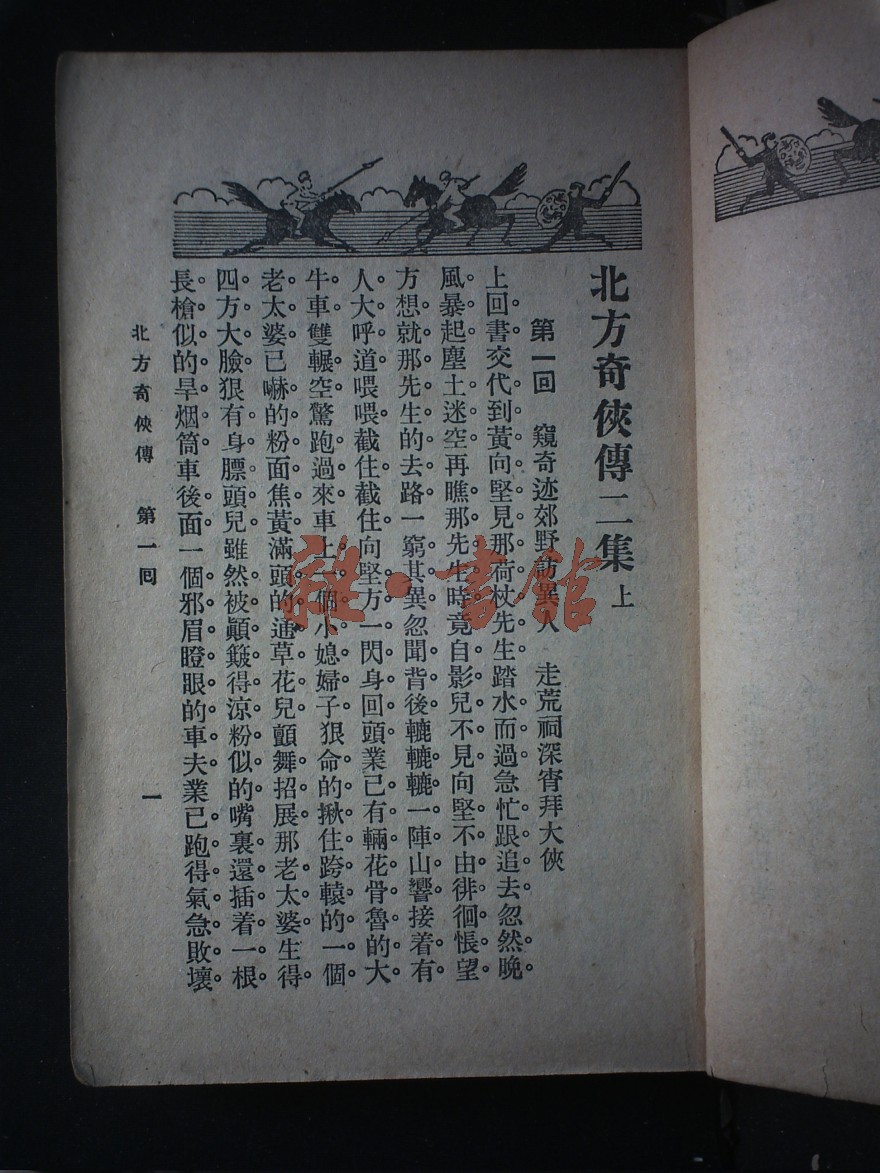 北方奇俠傳二集 上
第一回 窺奇迹郊野訪異人 走荒祠深宵拜大俠
上回書交代到黃向堅見那荷杖先生踏水而過急忙跟追去忽然晚
風暴起塵土迷空再瞧那先生時竟自影兒不見向堅不由徘徊悵望
方想就那先生的去路一窮其異忽聞背後轆轆轆一陣山響接着有
人大呼道喂喂截住截住向堅方一閃身回頭業已有輛花骨魯的大
牛車雙輾空驚跑過來車上一個小媳婦子狠命的揪住跨轅的一個
老太婆已嚇的粉面焦黃滿頭的通草花兒顫舞招展那老太婆生得
四方大臉狠有身膘頭兒雖然被顛簸得涼粉似的嘴裏還插着一根
長槍似的旱烟筒車後面一個邪眉瞪眼的車夫業已跑得氣急敗壞
北方奇俠傳 第一回 一
雜·書館